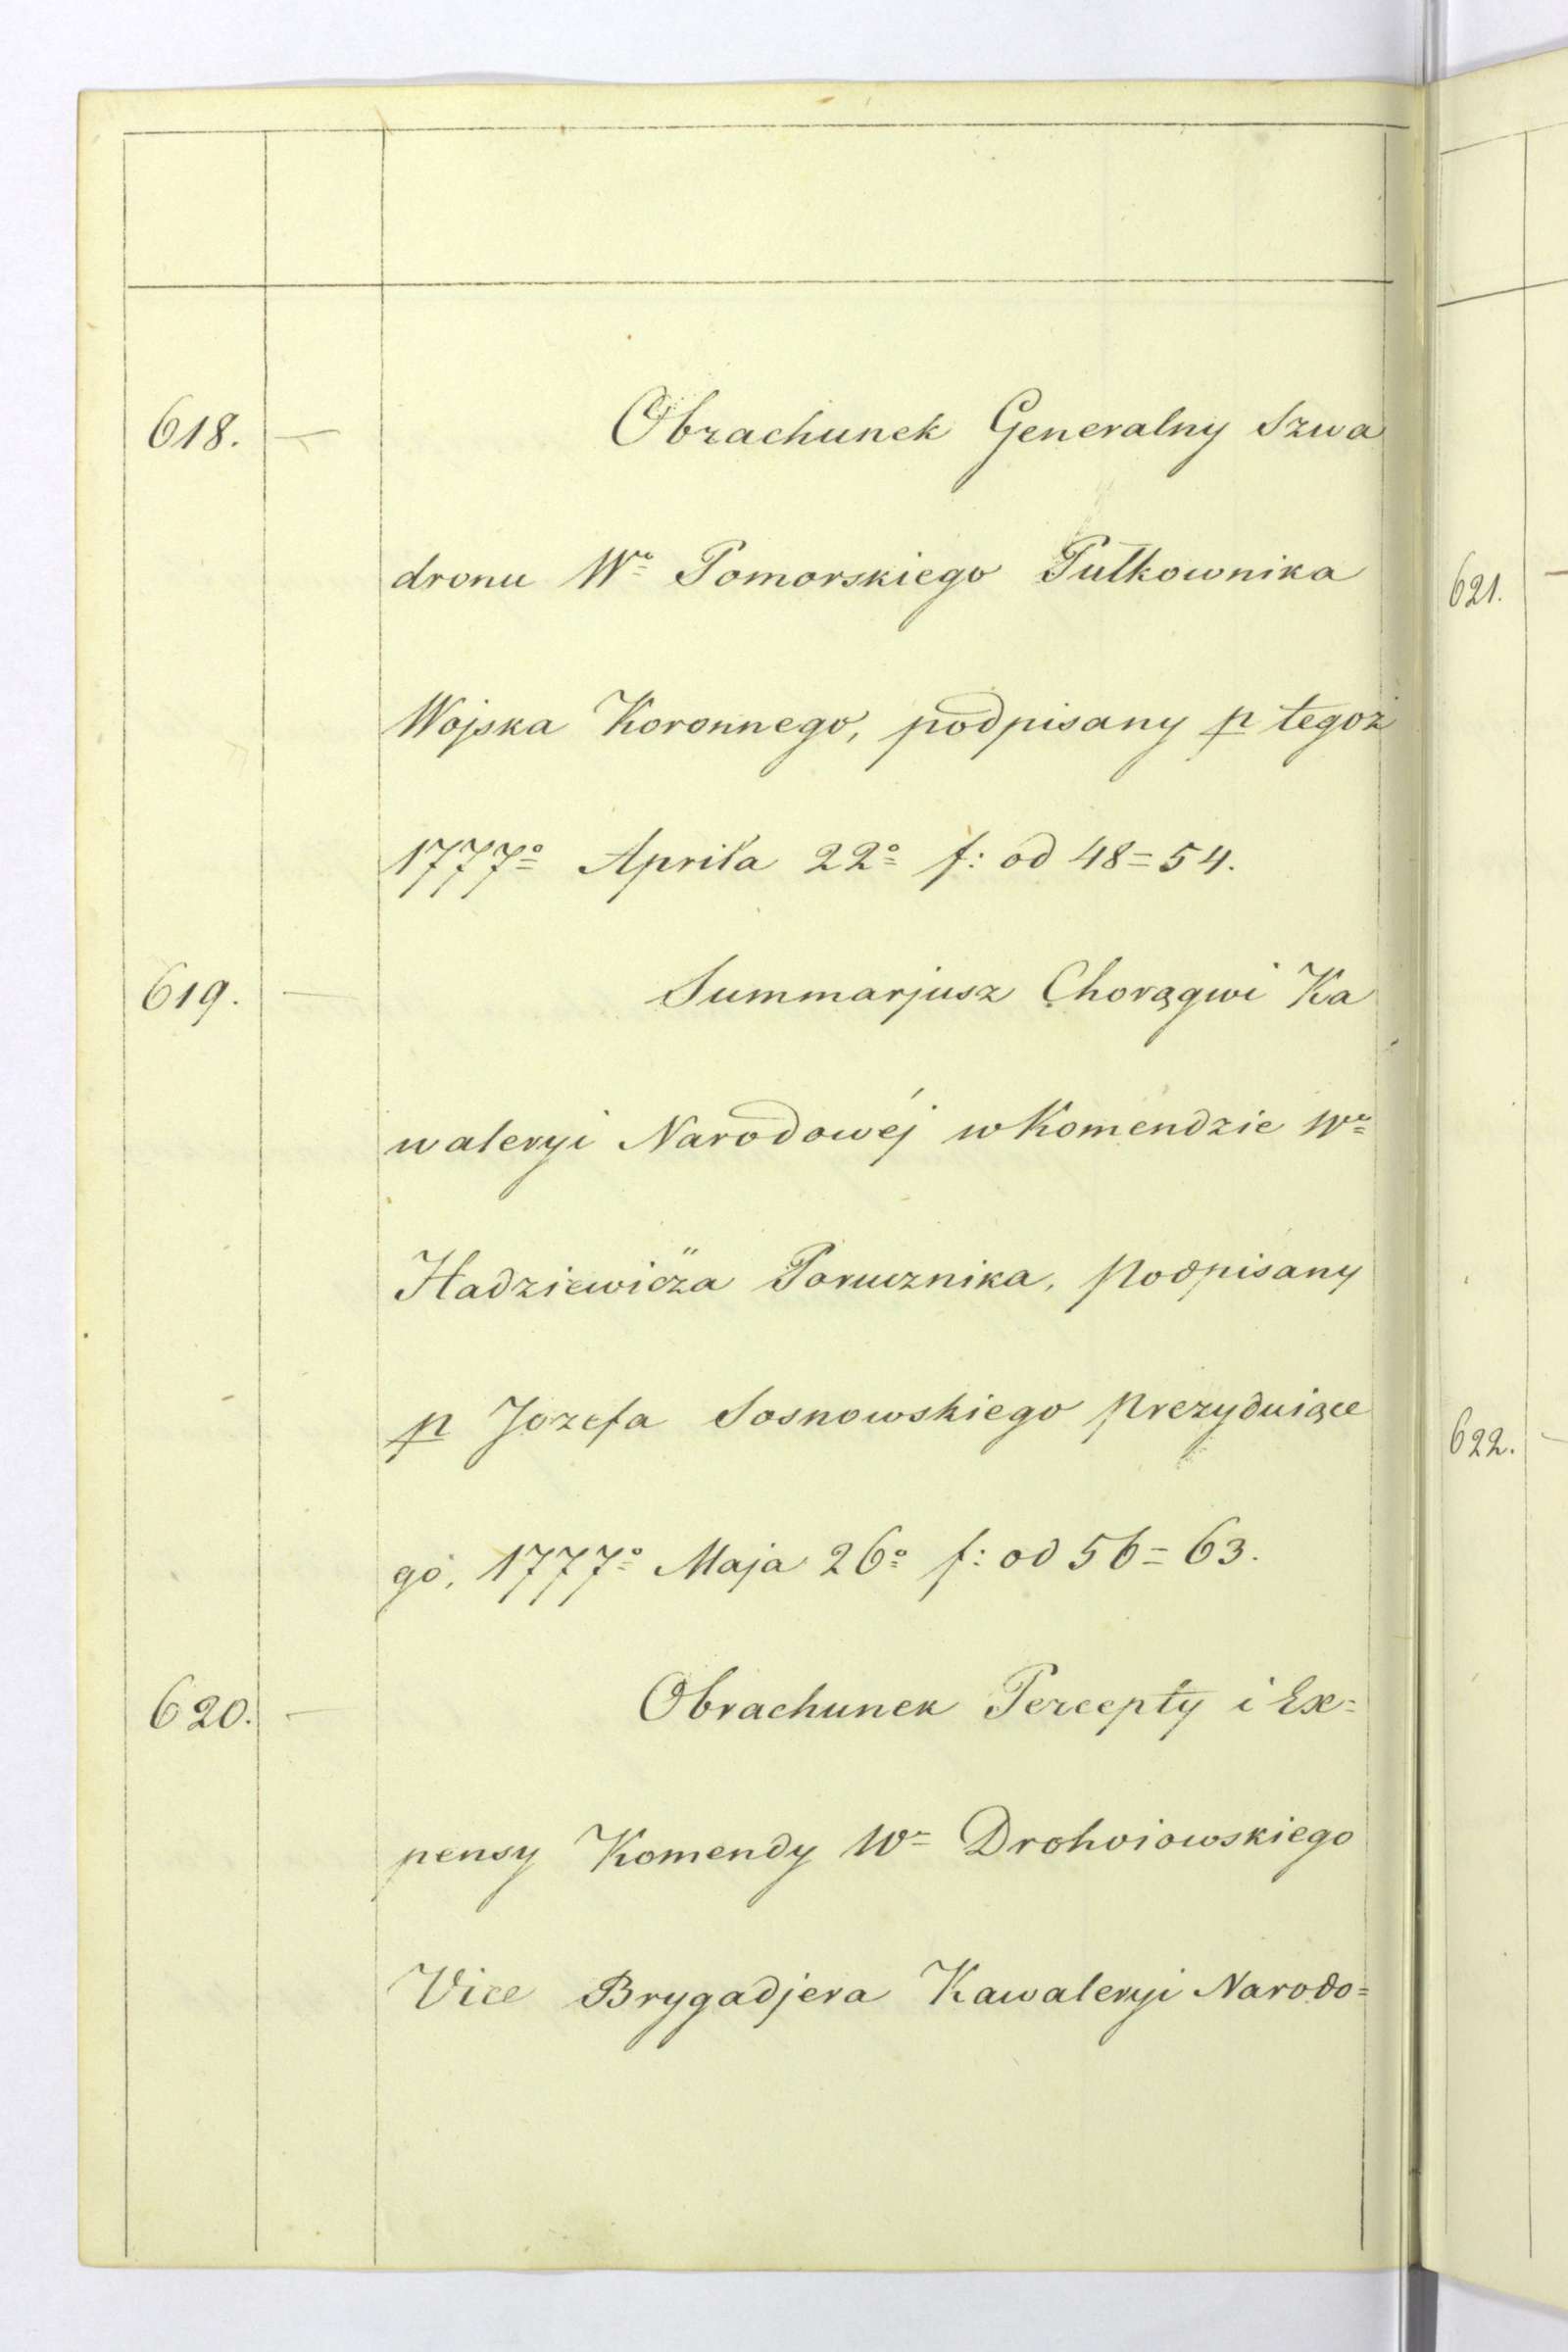 618. — Obrachunek Generalny Szwa
dronu Wo Pomorskiego Pułkownika
Wojska Koronnego, podpisany p tegoż
1777o Aprila 22o f: od 48=54.
619. — Summarjusz Chorągwi Ka
waleryi Narodowéj w Komendzie Wo
Hadziewicza Porucznika, podpisany
p Jozefa Sosnowskiego prezyduiące
go, 1777o Maja 26o f: od 56=63.
620. — Obrachunek Percepty i Ex=
pensy Komendy Wo Drohoiowskiego
Vice Brygadjera Kawaleryi Narodo=
621. —
622. —